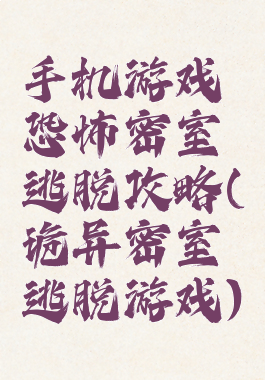 手机游戏
恐怖密室
逃脱攻略(
诡异密室
逃脱游戏)